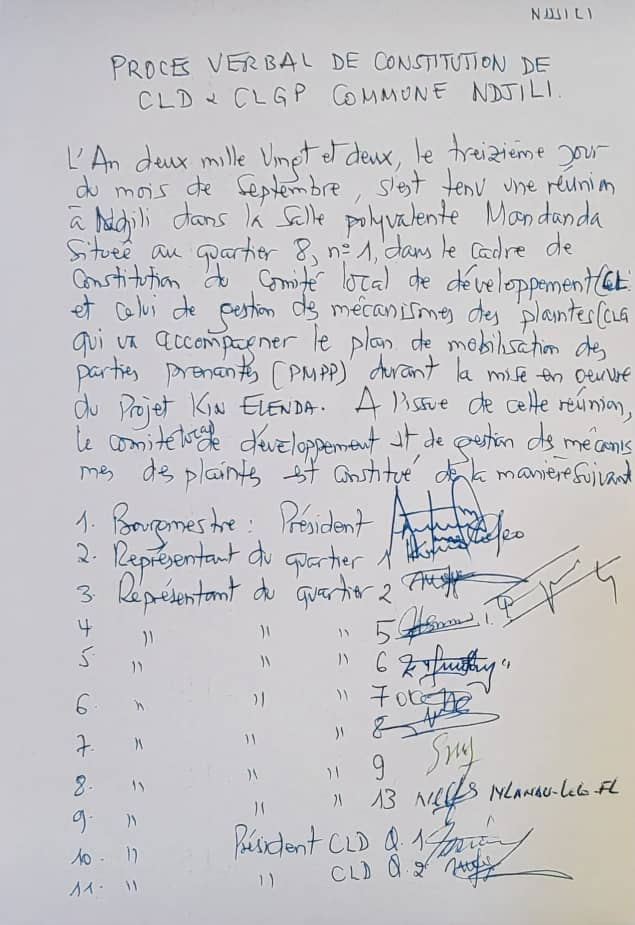 NDJILI
PROCES VERBAL DE CONSTITUTION DE
CLD & CLGP COMMUNE NDJILI.
L'An deux mille Vingt et deux, le treizième jour
du mois de Septembre, s'est tenu une réunion
à Ndjili dans la salle polyvalente Mandanda
Située au quartier 8, n° 1, dans le cadre de
Constitution du Comité local de développement (CL
et celui de gestion des mécanismes des plaintes (CLG
qui va accompagner le plan de mobilisation des
parties prenantes (PMPP) durant la mise en oeuvre
du Projet KIN ELENDA. A l'issue de cette réunion,
le comité local de développement et de gestion des mécanis
mes des plaintes est constitué de la manière suivant
1. Bourgmestre : Président
2. Représentant du quartier 1
3. Représentant du quartier 2
4 " " " 5
5 " " " 6
6. " " " 7
7. " " " 8
8. " " " 9
9. " " " 13
10. " Président CLD Q. 1
11. " " CLD Q. 2